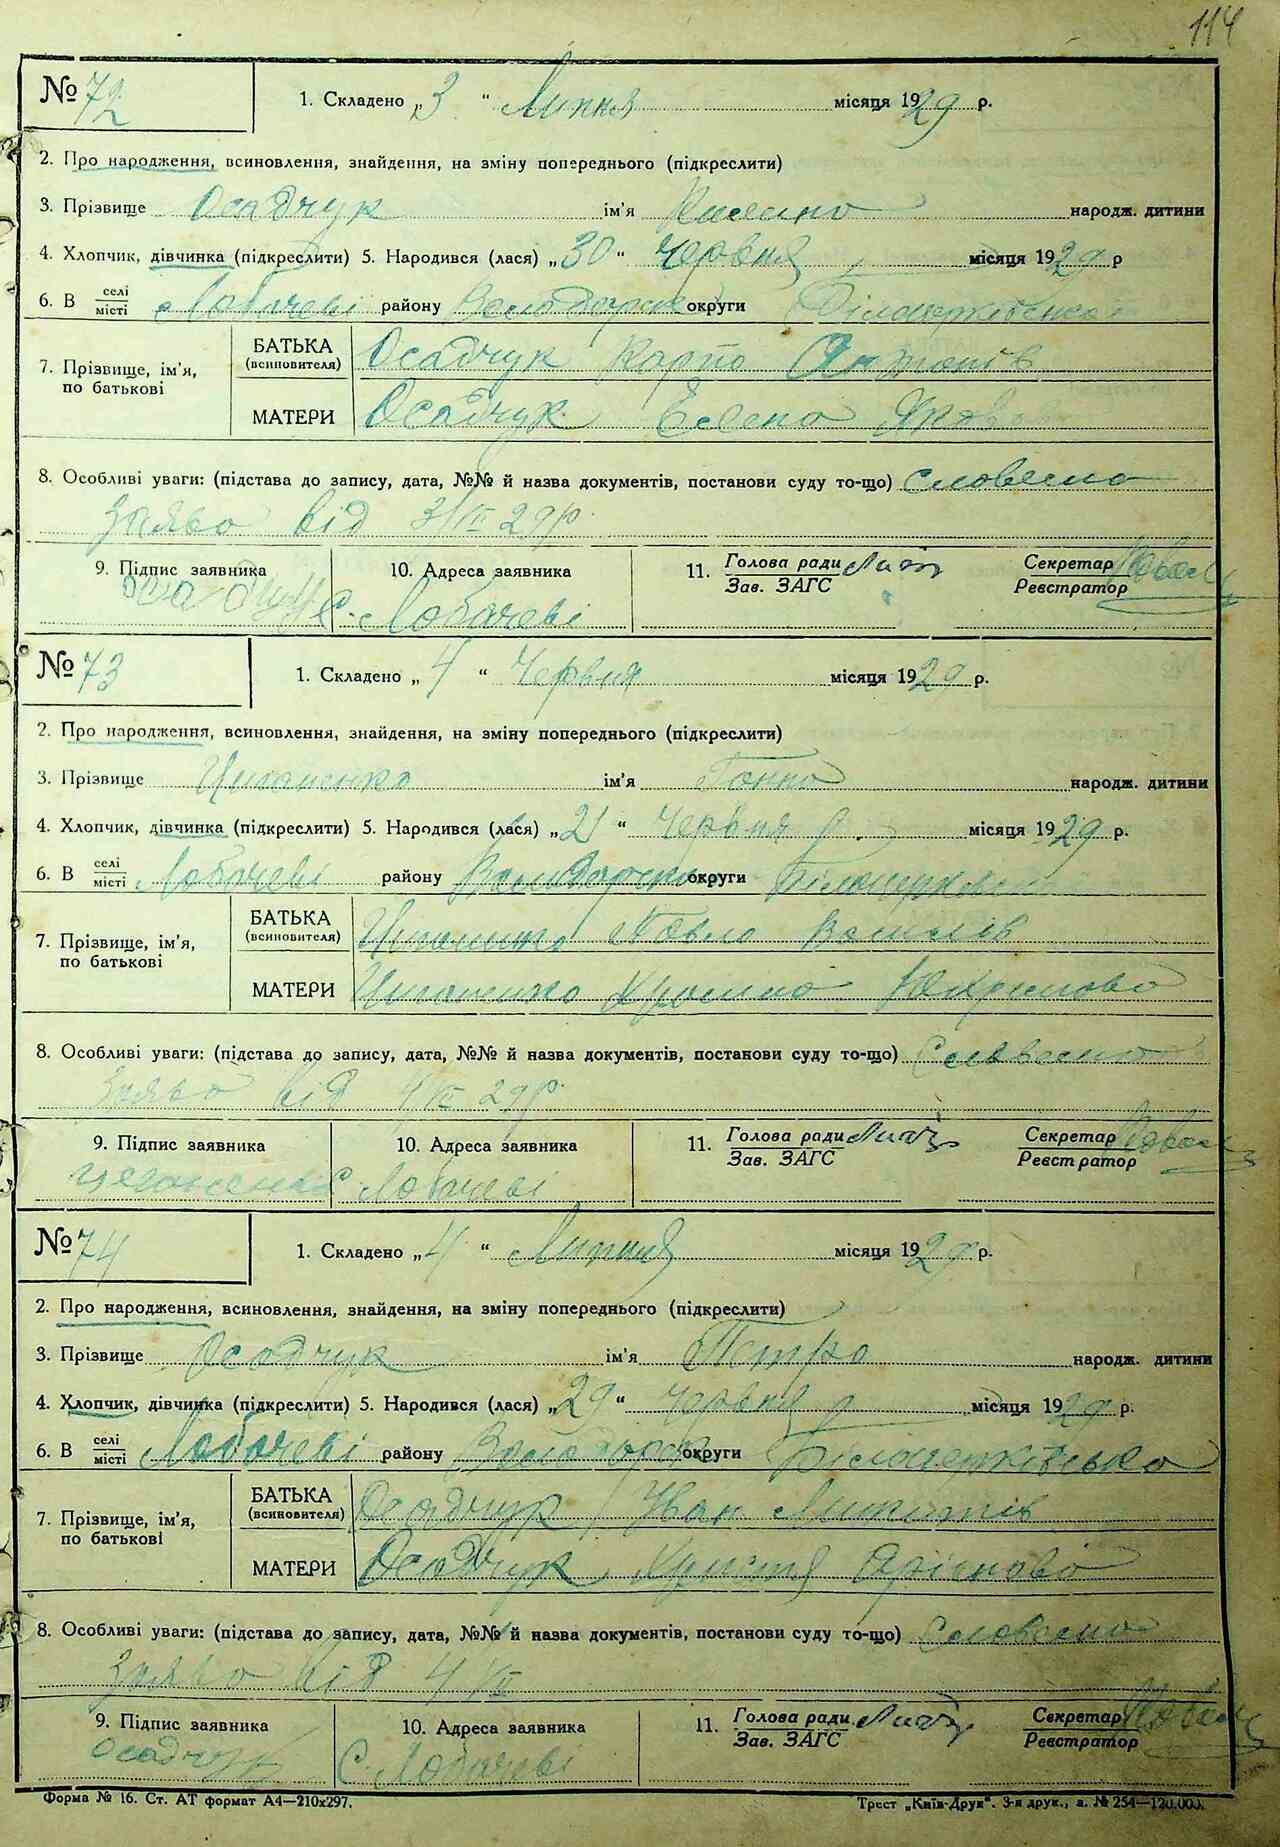 114
№ 72 1. Складено „3“ Липня місяця 1929 р.
2. Про народження, всиновлення, знайдення, на зміну попереднього (підкреслити)
3. Прізвище Осадчук ім'я народж. дитини
4. Хлопчик, дівчинка (підкреслити) 5. Народився (лася) „30“ червня місяця 1929 р
6. В селі місті Лобачеві району округи Білоцерківська
7. Прізвище, ім'я, по батькові
БАТЬКА (всиновителя) Осадчук Карпо Антонів
МАТЕРИ Осадчук Елена
8. Особливі уваги: (підстава до запису, дата, №№ й назва документів, постанови суду то-що) словесна
заява від 3/VII 29р.
9. Підпис заявника 10. Адреса заявника 11. Голова ради Зав. ЗАГС Секретар Реєстратор
Осадчук с. Лобачеві
№ 73 1. Складено „4“ Червня місяця 1929 р.
2. Про народження, всиновлення, знайдення, на зміну попереднього (підкреслити)
3. Прізвище Циганенко ім'я Ганна народж. дитини
4. Хлопчик, дівчинка (підкреслити) 5. Народився (лася) „21“ червня місяця 1929 р.
6. В селі місті Лобачеві району округи
7. Прізвище, ім'я, по батькові
БАТЬКА (всиновителя) Циганенко Павло Василів
МАТЕРИ Циганенко
8. Особливі уваги: (підстава до запису, дата, №№ й назва документів, постанови суду то-що) Словесна
заява від 4/VII 29р.
9. Підпис заявника 10. Адреса заявника 11. Голова ради Зав. ЗАГС Секретар Реєстратор
с. Лобачеві
№ 74 1. Складено „4“ Липня місяця 1929 р.
2. Про народження, всиновлення, знайдення, на зміну попереднього (підкреслити)
3. Прізвище Осадчук ім'я Петро народж. дитини
4. Хлопчик, дівчинка (підкреслити) 5. Народився (лася) „29“ червня місяця 1929 р.
6. В селі місті Лобачеві району округи Білоцерківська
7. Прізвище, ім'я, по батькові
БАТЬКА (всиновителя) Осадчук Іван Микитів
МАТЕРИ Осадчук Христя
8. Особливі уваги: (підстава до запису, дата, №№ й назва документів, постанови суду то-що) Словесна
заява від 4/VII
9. Підпис заявника 10. Адреса заявника 11. Голова ради Зав. ЗАГС Секретар Реєстратор
Осадчук с. Лобачеві
Форма № 16. Ст. АТ формат А4—210х297. Трест „Київ-Друк“. 3-я друк., з. № 254—120.000.